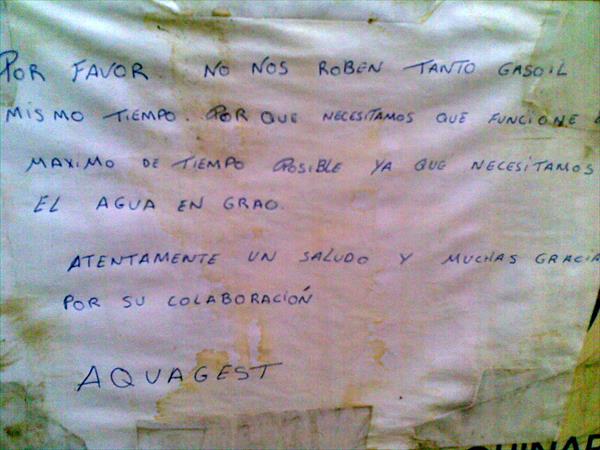 POR FAVOR. NO NOS ROBEN TANTO GASOIL
MISMO TIEMPO. POR QUE NECESITAMOS QUE FUNCIONE
MAXIMO DE TIEMPO POSIBLE YA QUE NECESITAMOS
EL AGUA EN GRAO.
ATENTAMENTE UN SALUDO Y MUCHAS GRACIA
POR SU COLABORACIÓN
AQUAGEST
QUINAR